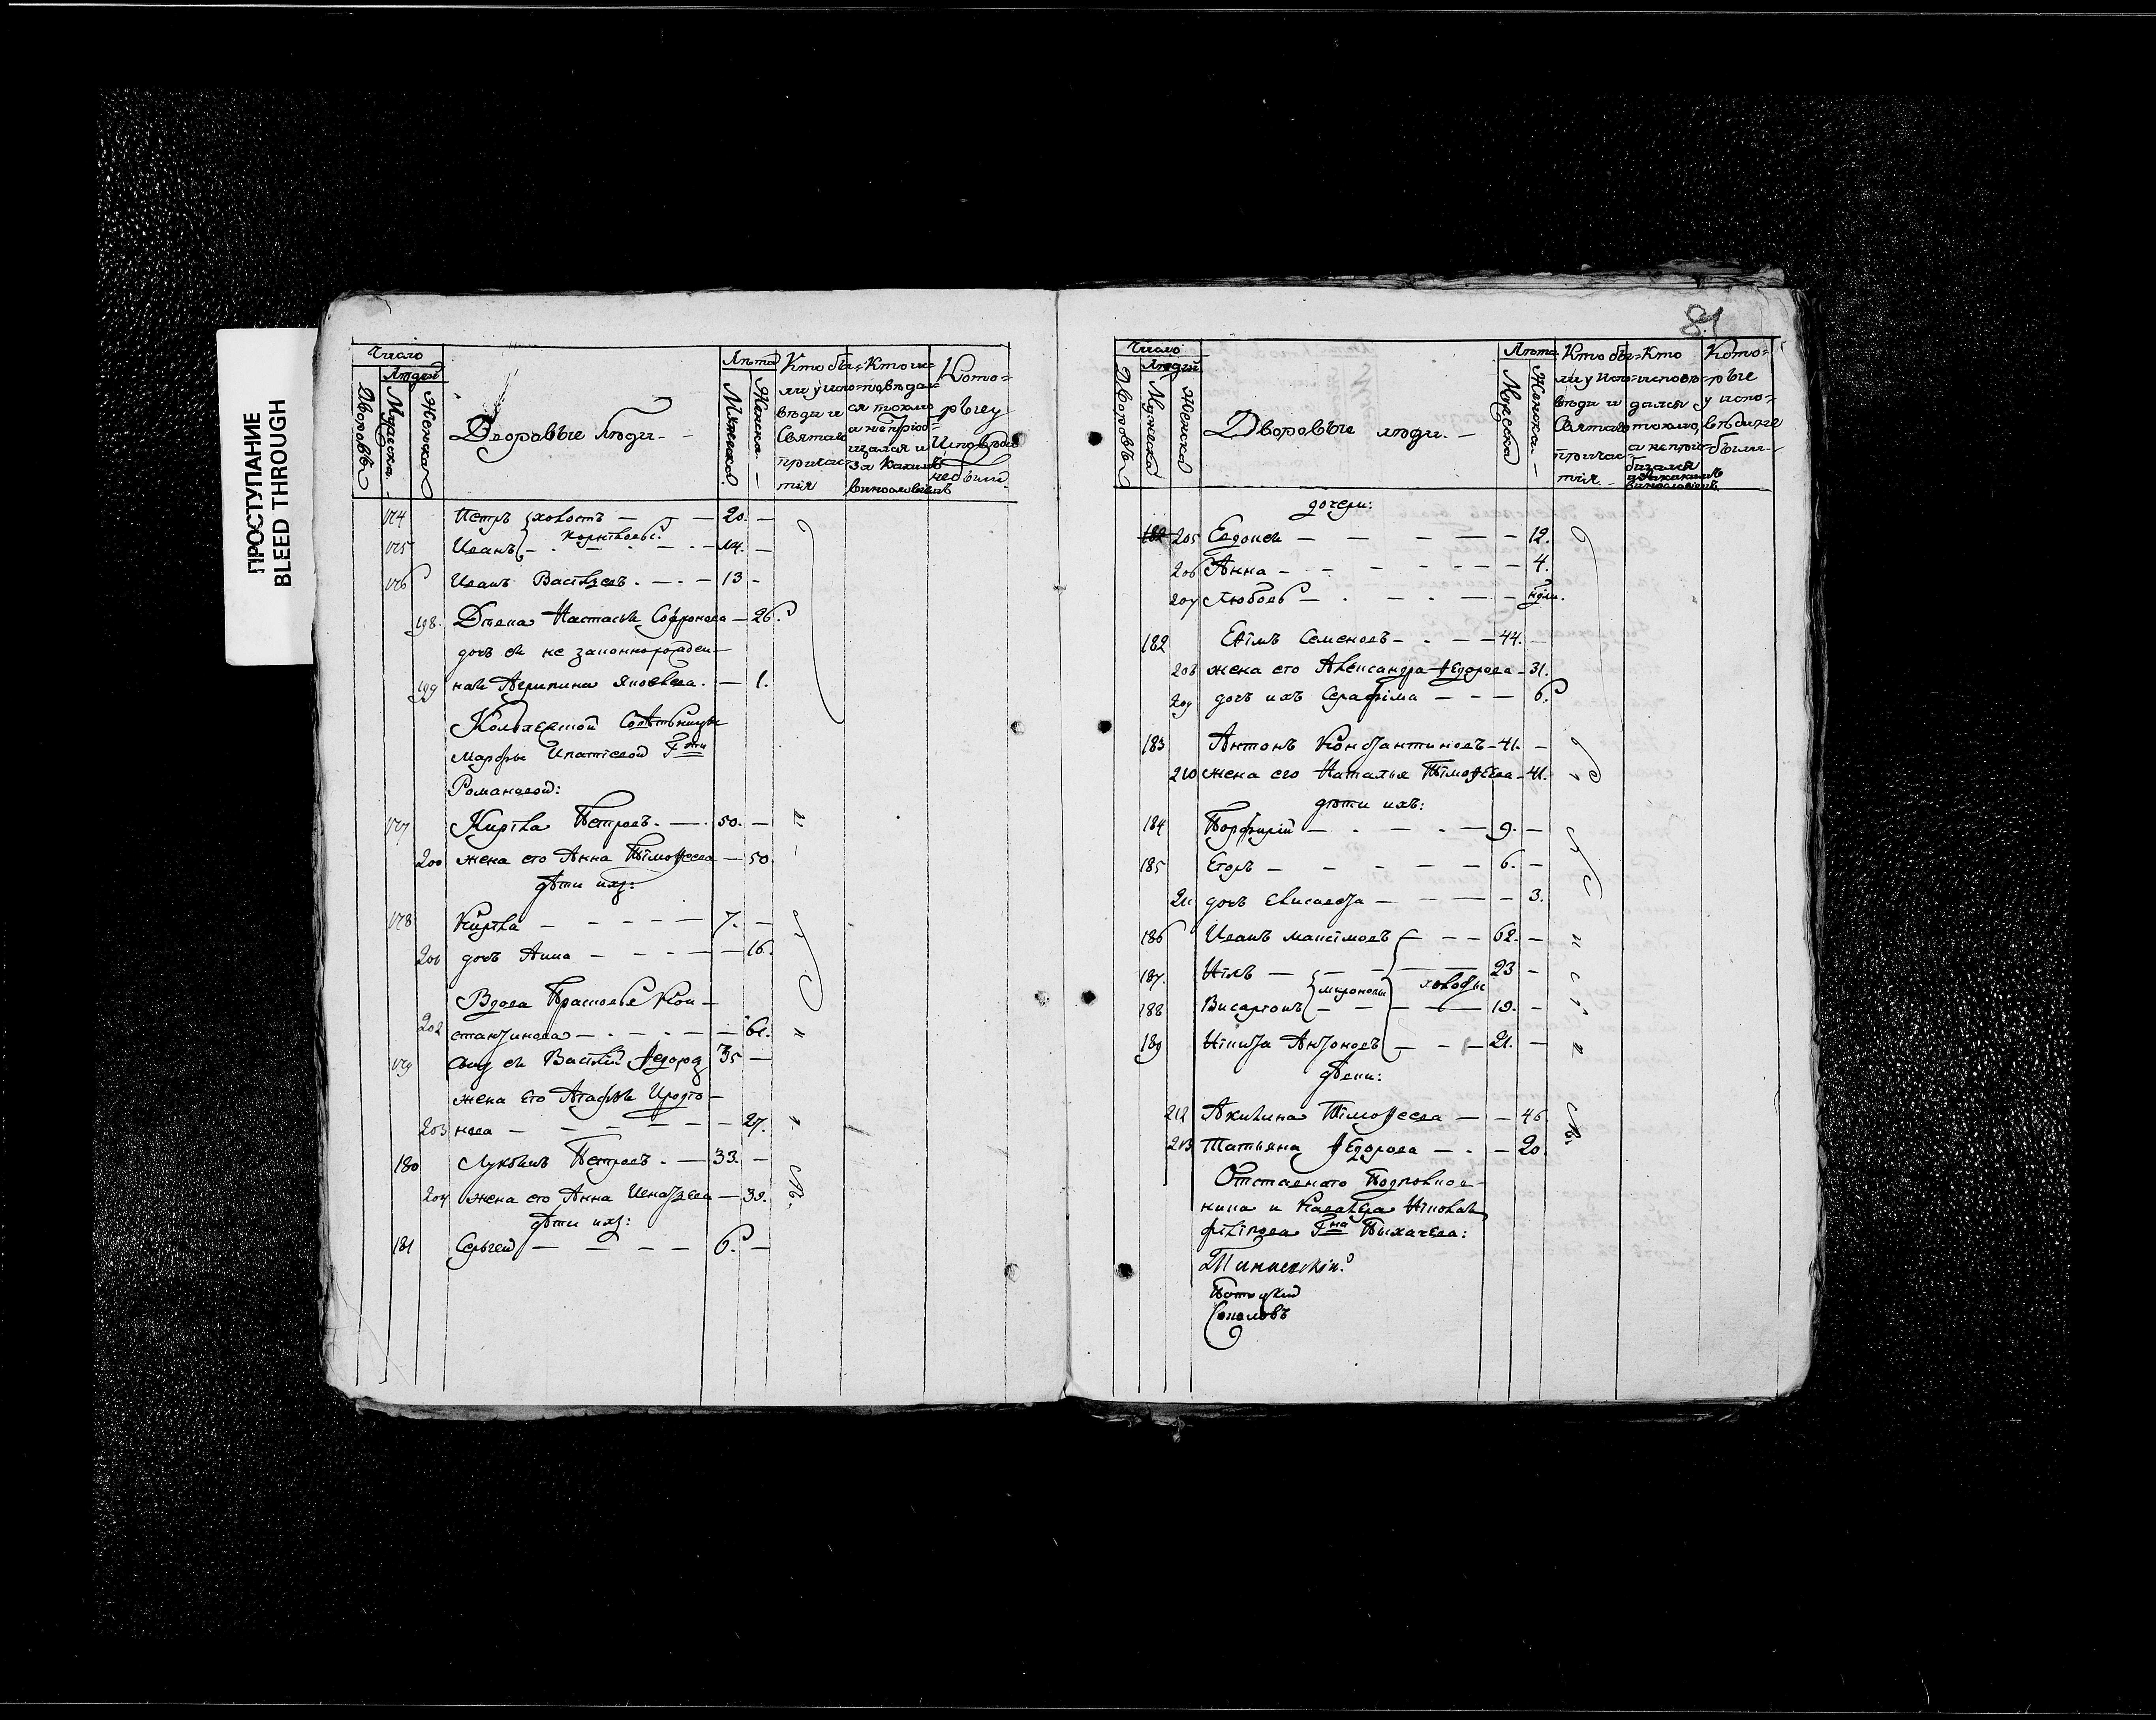 ПРОСТУПАНИЕ
BLEED THROUGH
Число
Людей
Дворовъ
Мужеска
Женска
Дворовые люди
Лѣта
Мужеска
Женска
Кто бы-
ли у испо-
вѣди и
Святаго
причас-
тія
Кто ис-
повѣдал-
ся токмо
а не приоб-
щался и
за какимъ
винословіемъ
Кото-
рые у
Исповѣди
не были
174 Петръ холостъ — 20. —
Корнѣловы
175 Иванъ — 14. —
176 Иванъ Васильевъ. — 13 —
198. Дѣвка Настасья Софронова — 26.
дочь ея не законнорожден-
199 ная Агрипина Яковлева. — 1.
Коллежской Совѣтницы
Марфы Ипатіевой Г-жи
Романовой:
177 Кирила Петровъ. — 50. —
200 жена его Анна Тимоѳеева — 50
дѣти ихъ:
178 Кирила — 7. —
201 дочь Анна — 16.
Вдова Прасковья Кон-
202 стантинова — 61.
179 сынъ ея Василій Ѳедоровъ 35 —
жена его Агафья Иродіо-
203 нова — 27.
180 Лукьянъ Петровъ. — 33. —
204 жена его Анна Игнатьева — 39.
дѣти ихъ:
181 Сергей — 6. —
81
Число
Людей
Дворовъ
Мужеска
Женска
Дворовые люди.
Лѣта
Мужеска
Женска
Кто бы-
ли у испо-
вѣди и
Святаго
причас-
тія
Кто
исповѣ-
дался
токмо,
а не пріо-
бщался
и за какимъ
винословіемъ
Кото-
рые
у испо-
вѣди не
были
дочери:
182 205 Евдокія — 12.
206 Анна — 4.
207 Любовь — нѣдл.
182 Ефимъ Семеновъ — 44. —
208 жена его Александра Ѳедорова — 31.
209 дочь ихъ Серафима — 6.
183 Антонъ Константиновъ — 41. —
210 жена его Наталья Тимоѳеева — 41.
дѣти ихъ:
184 Порфирій — 9. —
185 Егоръ — 6. —
211 дочь Елисавета — 3.
186 Иванъ Максимовъ — 62. —
187. Нилъ — 23 —
мироновы холосты
188 Висарионъ — 19. —
189 Никита Антоновъ — 21. —
дѣвки:
212 Акилина Тимоѳеева — 46.
213 Татьяна Ѳедорова — 20.
Отставнаго Подполков-
ника и Кавалера Николая
Г-на Пыхачева: